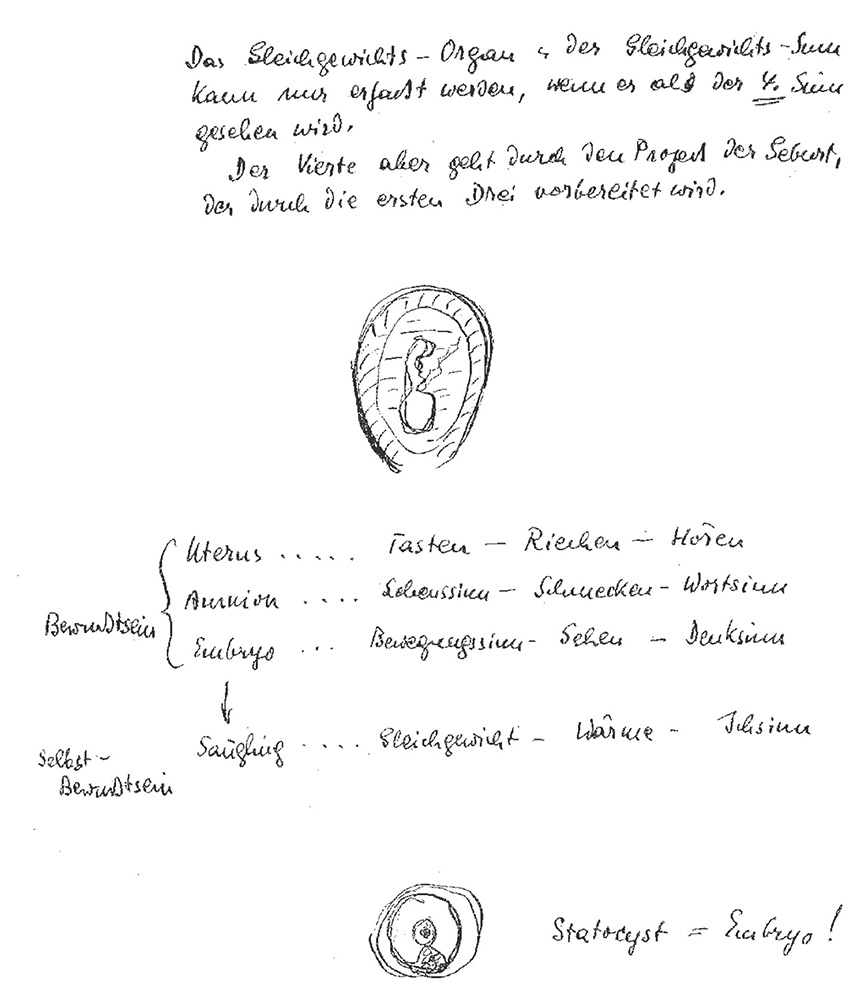 Das Gleichgewichts-Organ u der Gleichgewichts-Sinn
kann nur erfaßt werden, wenn er als der 4. Sinn
gesehen wird.
Der Vierte aber geht durch den Prozeß der Geburt,
der durch die ersten Drei vorbereitet wird.
Bewußtsein
Uterus ..... Tasten – Riechen – Hören
Amnion .... Lebenssinn – Schmecken – Wortsinn
Embryo ... Bewegungssinn – Sehen – Denksinn
Selbst-
Bewußtsein
Säugling .... Gleichgewicht – Wärme – Ichsinn
Statocyst = Embryo!